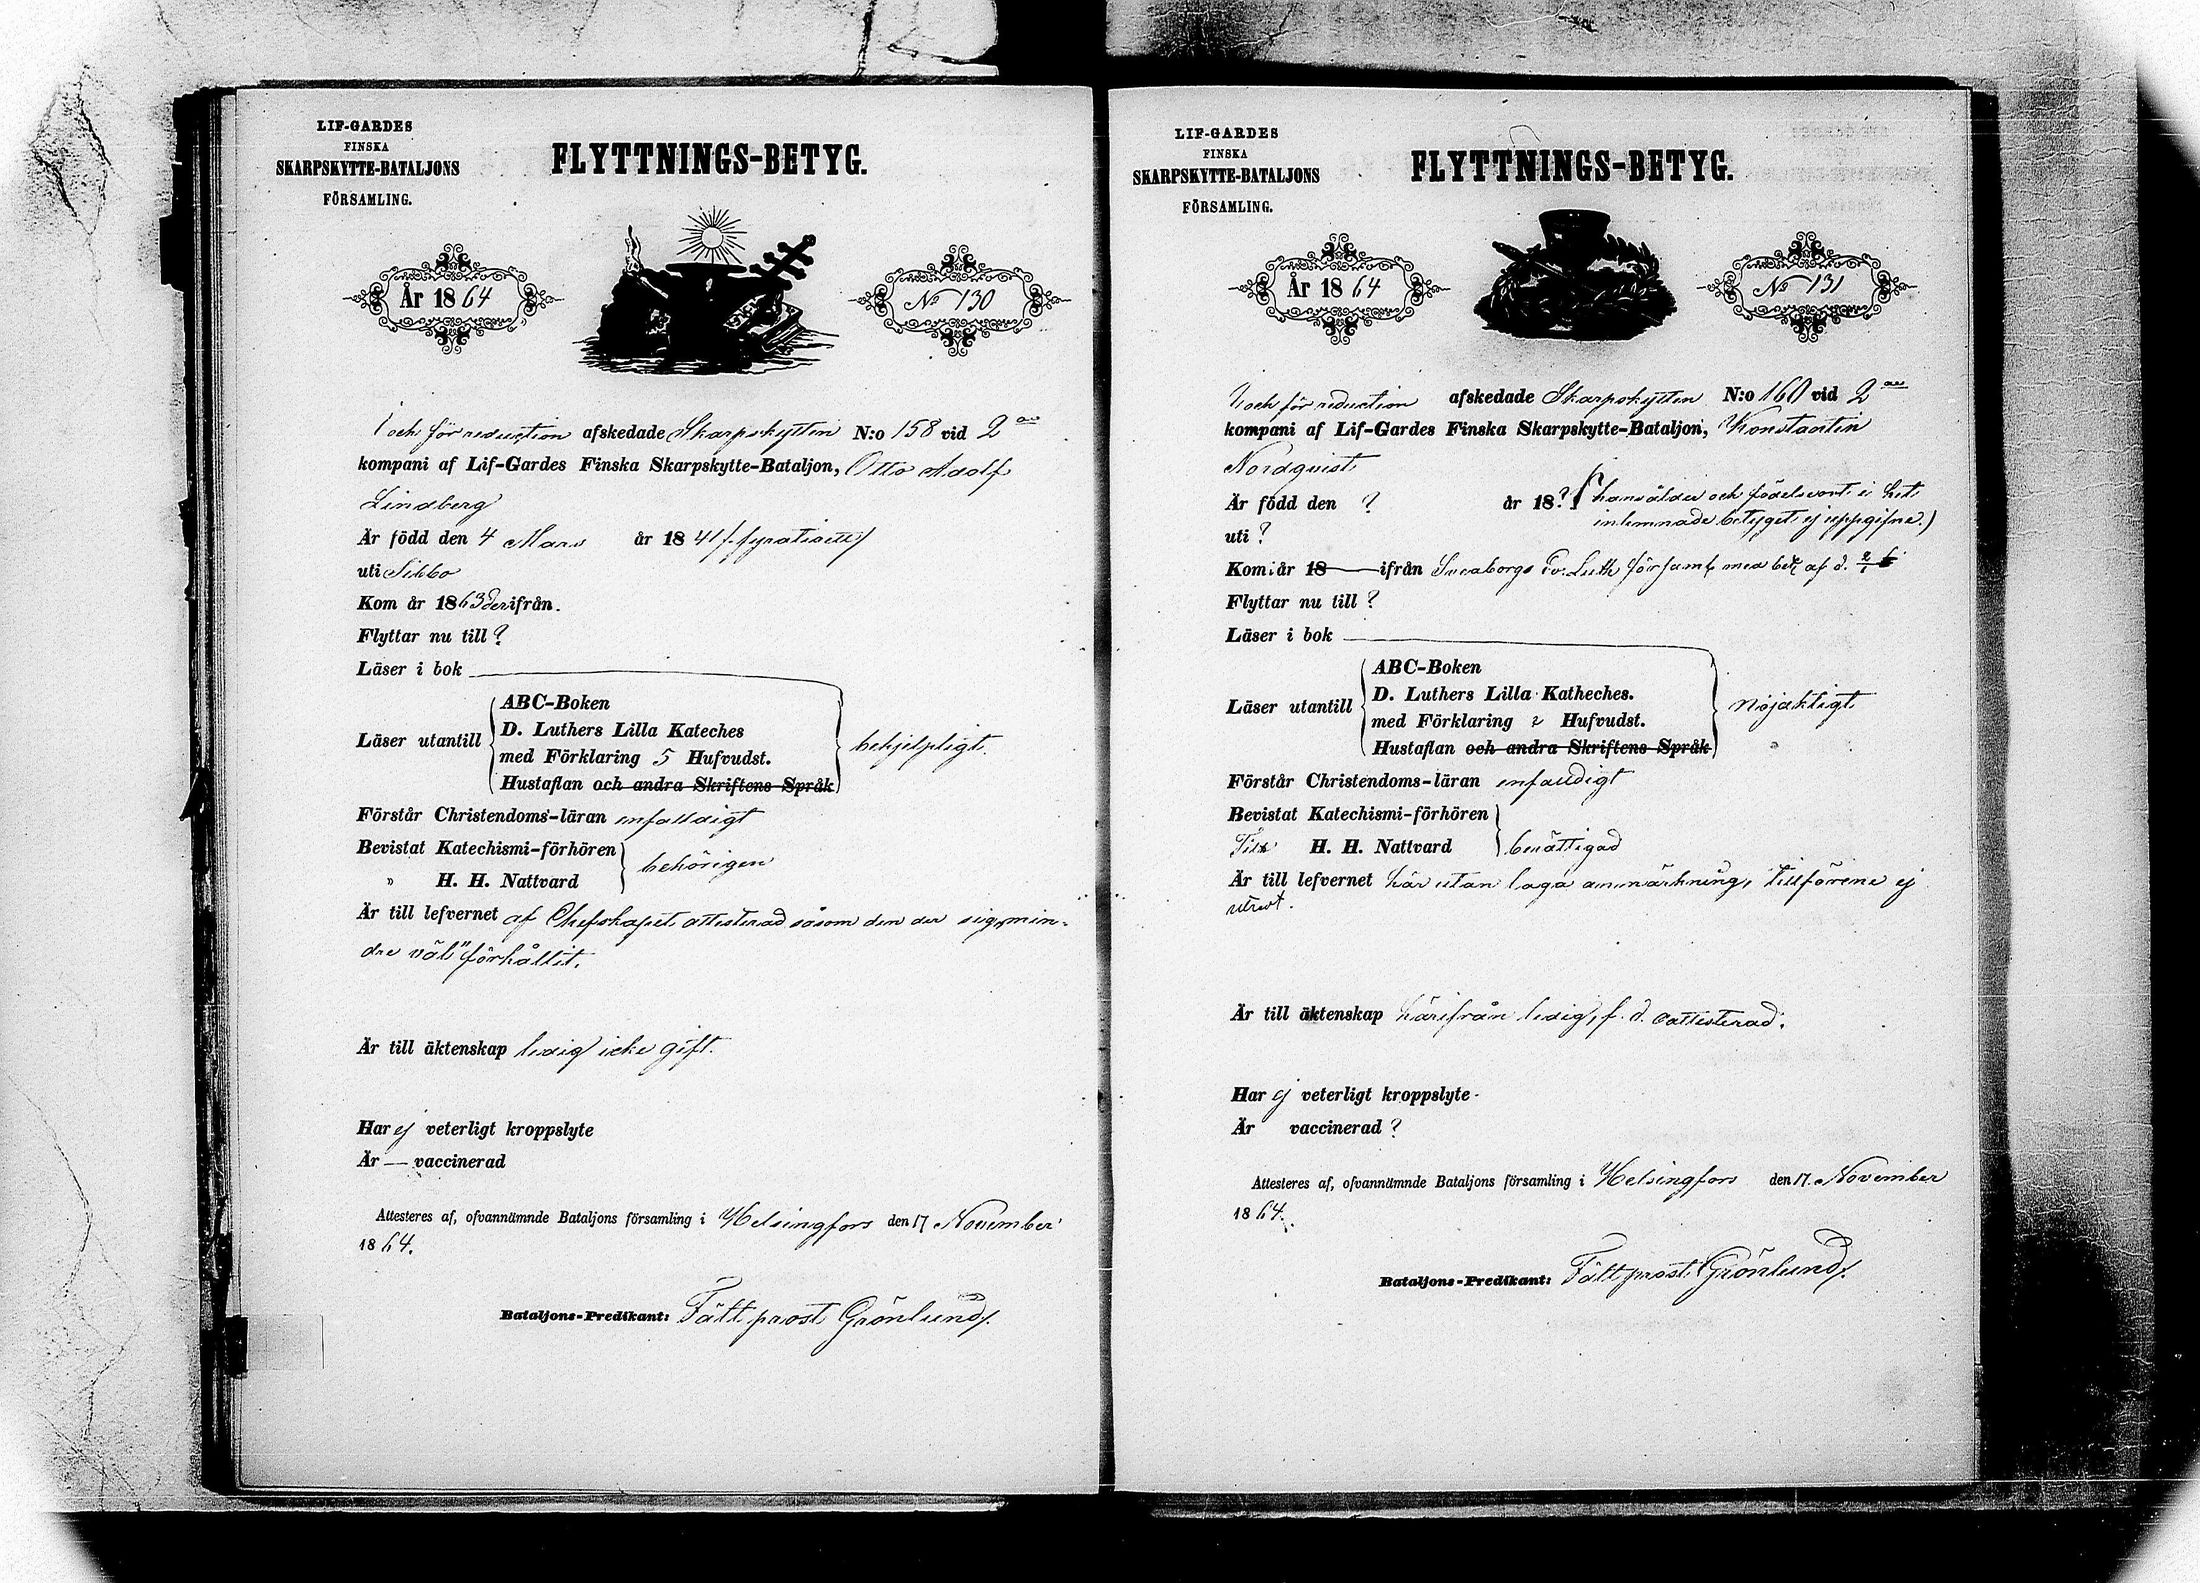 LIF-GARDES
FINSKA
SKARPSKYTTE-BATALJONS
FÖRSAMLING.
FLYTTNINGS-BETYG.
År 1864
No 130
och för reduction afskedade Skarpskytten N:o 158 vid 2
kompani af Lif-Gardes Finska Skarpskytte-Bataljon, Otto Adolf
Lindberg
Är född den 4 Mars år 1841 /fyratioett/
uti Sibbo
Kom år 1863 derifrån.
Flyttar nu till ?
Läser i bok
ABC-Boken
D. Luthers Lilla Kateches
Läser utantill
med Förklaring 5 Hufvudst.
behjelpligt.
Hustaflan och andra Skriftens Språk
Förstår Christendoms-läran enfalldigt
Bevistat Katechismi-förhören
behörigen
" H. H. Nattvard
Är till lefvernet af Chefskapet attesterad såsom den der sig "min-
dre väl" förhållit.
Är till äktenskap ledig icke gift.
Har ej veterligt kroppslyte
Är — vaccinerad
Attesteres af, ofvannämnde Bataljons församling i Helsingfors den 17 November
1864.
Bataljons-Predikant: Fältprost Grönlund/.
LIF-GARDES
FINSKA
SKARPSKYTTE-BATALJONS
FÖRSAMLING.
FLYTTNINGS-BETYG.
År 1864
No 131
och för reduction afskedade Skarpskytten N:o 160 vid 2
kompani af Lif-Gardes Finska Skarpskytte-Bataljon, Konstantin
Nordquist
Är född den ? år 18? (hans ålder och födelseort i det
inlemnade betyget ej uppgifne.)
uti ?
Kom år 18 ifrån Sveaborgs Ev. Luth församl med bet af d.
Flyttar nu till ?
Läser i bok
ABC-Boken
D. Luthers Lilla Katheches.
Läser utantill
nöjaktigt
med Förklaring 2 Hufvudst.
Hustaflan och andra Skriftens Språk
Förstår Christendoms-läran enfalldigt
Bevistat Katechismi-förhören
Till H. H. Nattvard berättigad
Är till lefvernet här utan laga anmärkning, tillförene ej
utredt.
Är till äktenskap härifrån ledig, f. d. oattesterad.
Har ej veterligt kroppslyte.
Är vaccinerad ?
Attesteres af, ofvannämnde Bataljons församling i Helsingfors den 17. November
1864.
Bataljons-Predikant: Fältprost Grönlund/.